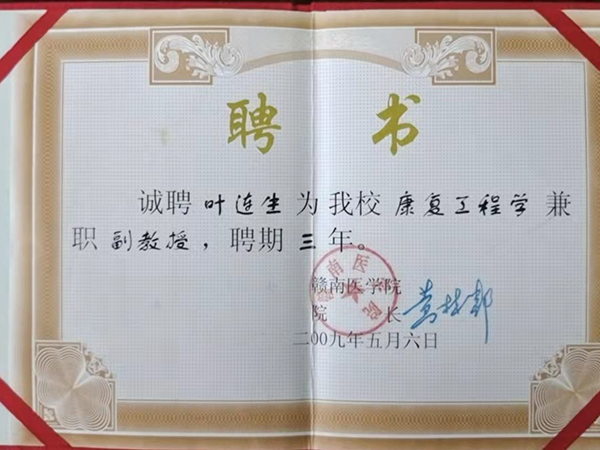 聘书
诚聘叶连生为我校康复工程学兼
职副教授，聘期三年。
赣南医学院
院长 黄林邦
二〇〇九年五月六日
赣南医学院